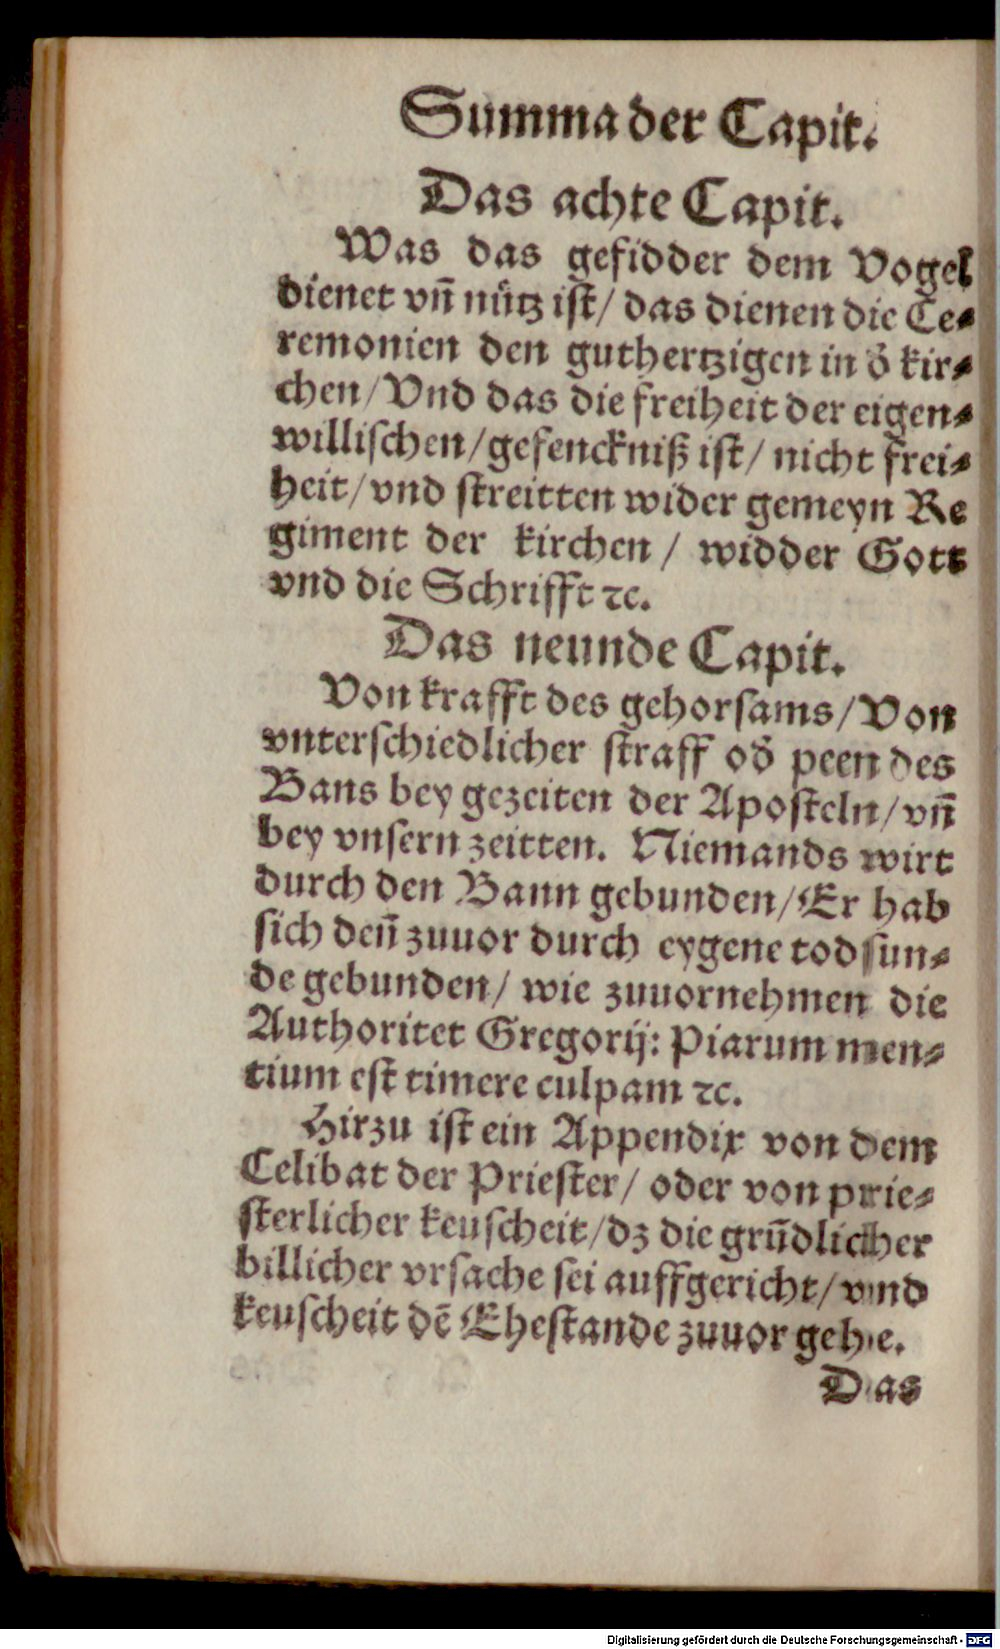 Summa der Capit.
Das achte Capit.
Was das gefidder dem Vogel
dienet vñ nütz ist/ das dienen die Ce⸗
remonien den guthertzigen in d̕ kir⸗
chen/ Vnd das die freiheit der eigen⸗
willischen/ gefenckniß ist/ nicht frei⸗
heit/ vnd streitten wider gemeyn Re
giment der kirchen/ widder Gott
vnd die Schrifft ꝛc.
Das neunde Capit.
Von krafft des gehorsams/ Von
vnterschiedlicher straff od̕ peen des
Bans bey gezeiten der Aposteln/ vñ
bey vnsern zeitten. Niemands wirt
durch den Bann gebunden/ Er hab
sich deñ zuuor durch eygene todsun⸗
de gebunden/ wie zuuornehmen die
Authoritet Gregorij: Piarum men⸗
tium est timere culpam ꝛc.
Hirzu ist ein Appendix von dem
Celibat der Priester/ oder von prie⸗
sterlicher keuscheit/ dz die grũdlicher
billicher vrsache sei auffgericht/ vnd
keuscheit dẽ Ehestande zuuor gehe.
Das
Digitalisierung gefördert durch die Deutsche Forschungsgemeinschaft - DFG